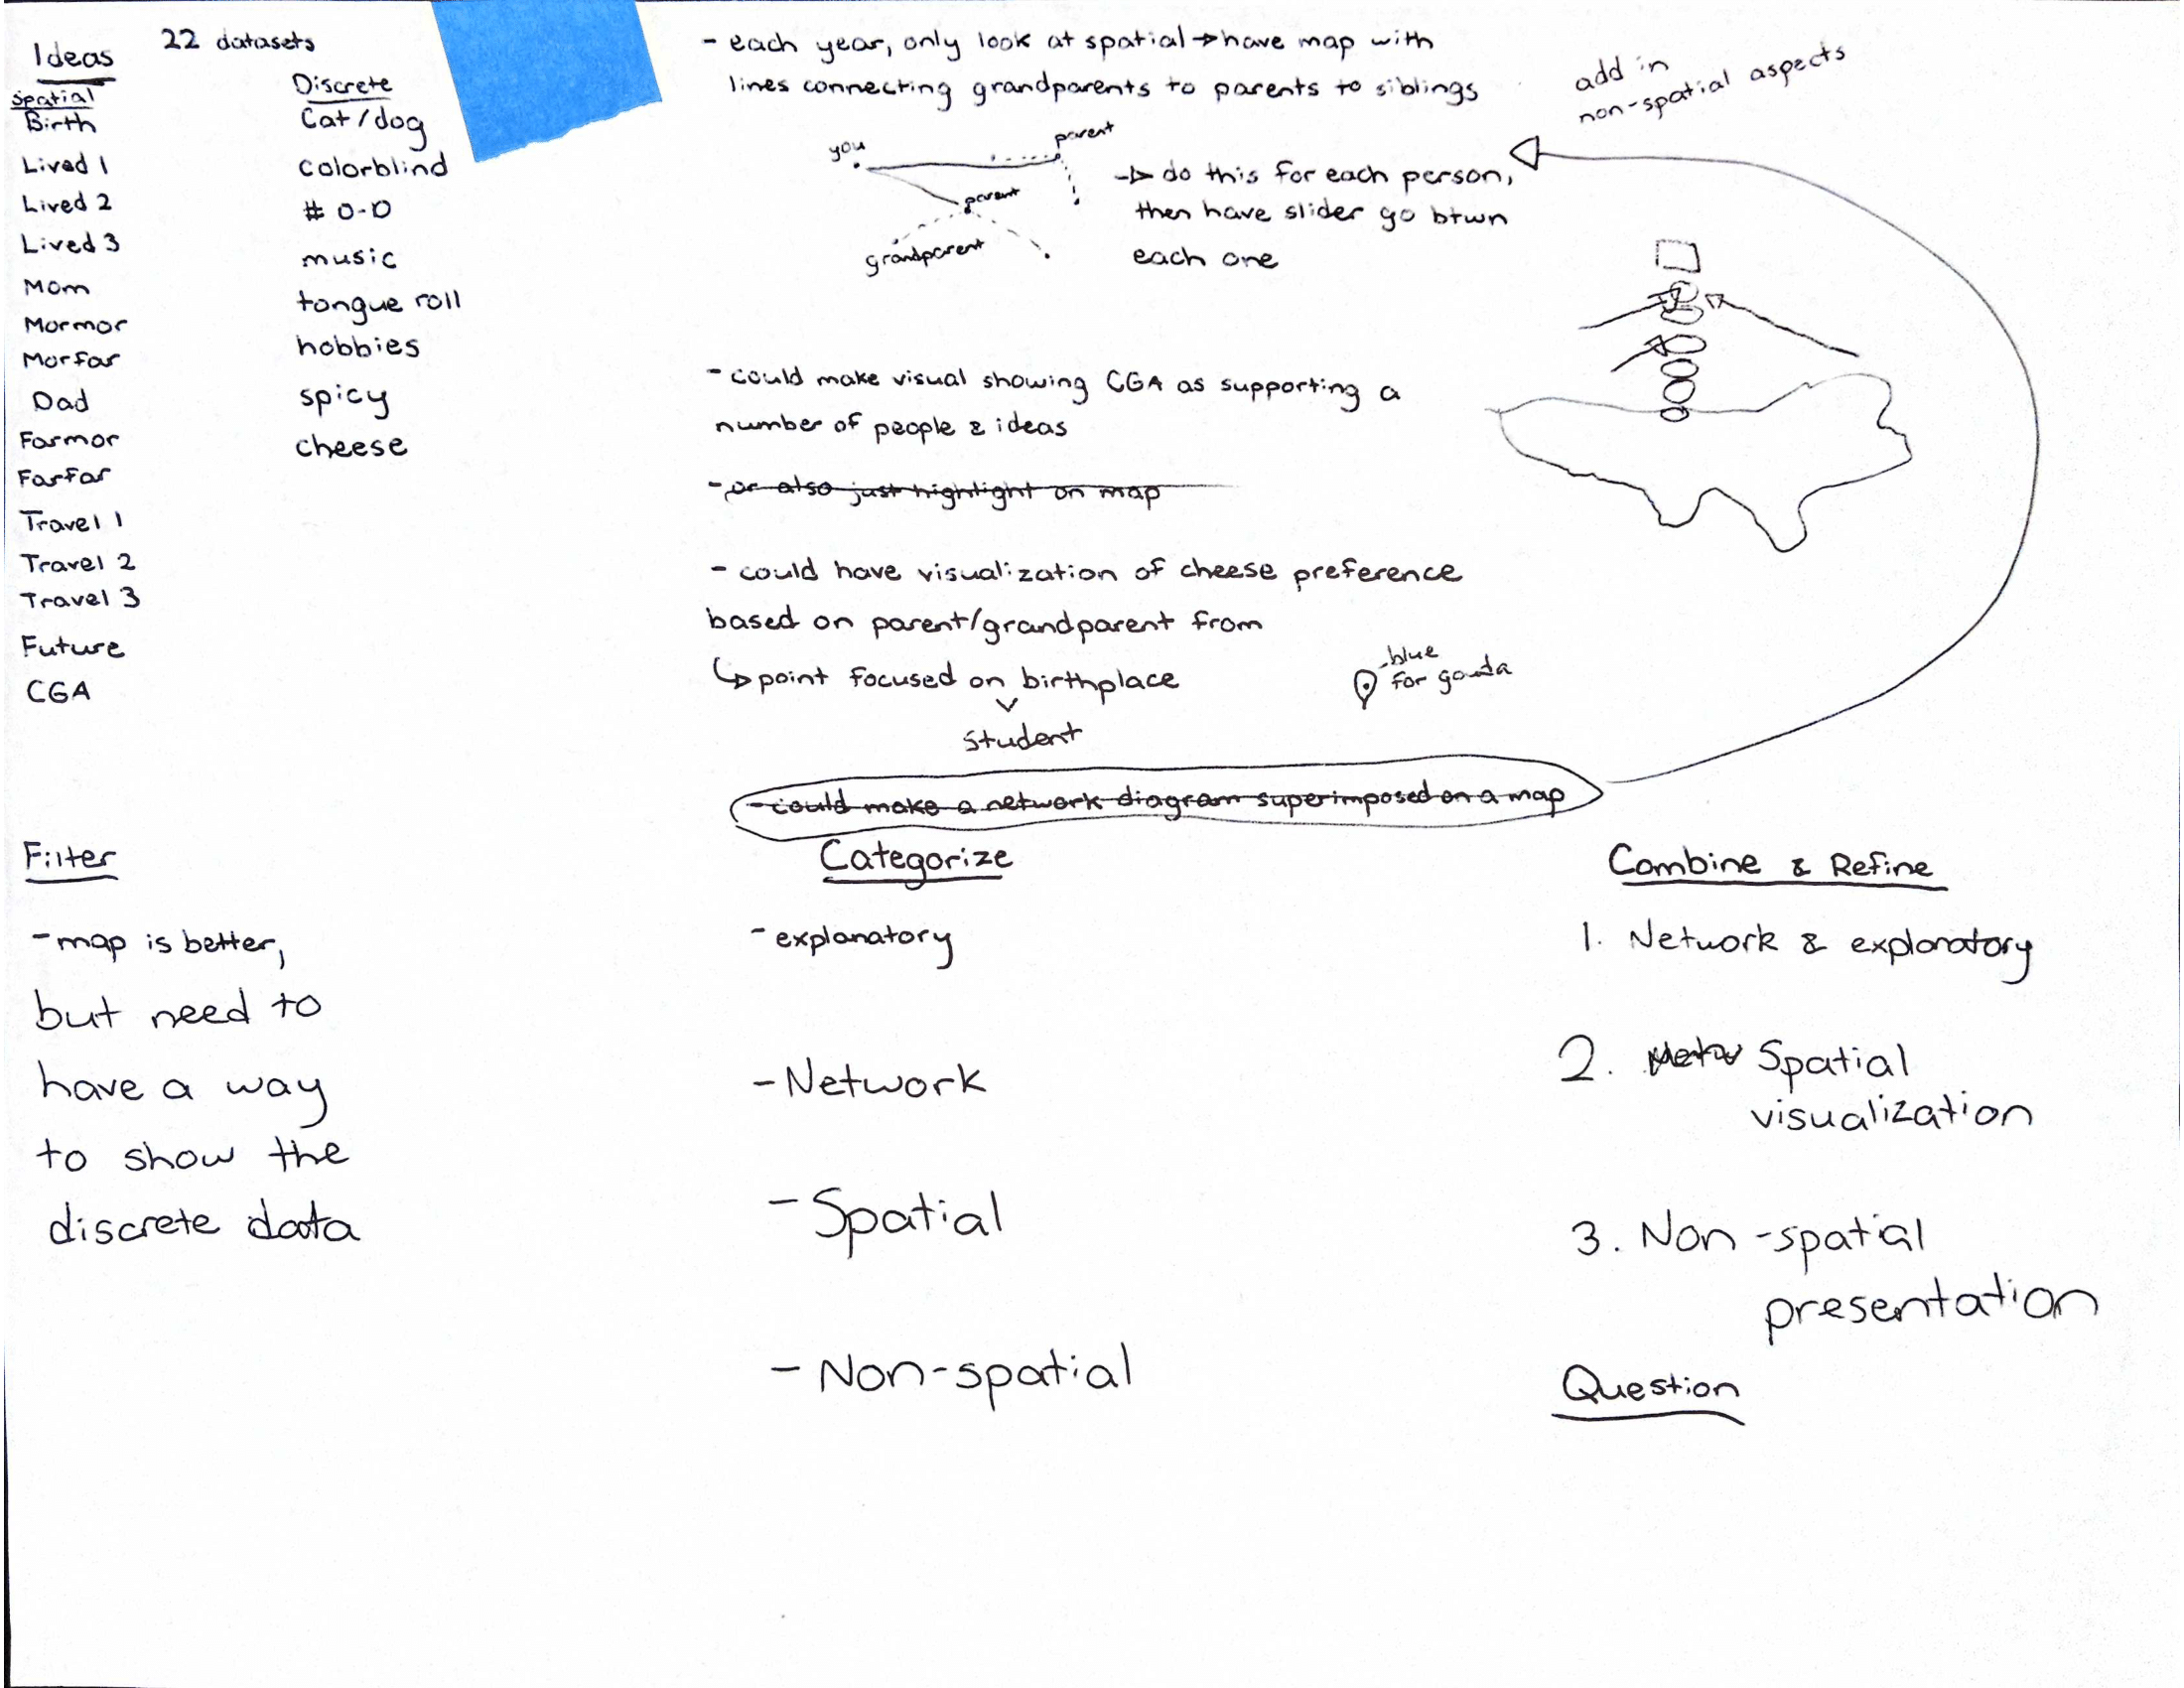 Ideas
22 datasets
Spatial
Birth
Lived 1
Lived 2
Lived 3
Mom
Mormor
Morfar
Dad
Farmor
Farfar
Travel 1
Travel 2
Travel 3
Future
CGA
Discrete
Cat/dog
colorblind
# 0-0
music
tongue roll
hobbies
spicy
cheese
- each year, only look at spatial → have map with
lines connecting grandparents to parents to siblings
add in
non-spatial aspects
you
parent
parent
grandparent
→ do this for each person,
then have slider go btwn
each one
- could make visual showing CGA as supporting a
number of people & ideas
- or also just highlight on map
- could have visualization of cheese preference
based on parent/grandparent from
↳ point focused on birthplace
student
blue
for gouda
- could make a network diagram superimposed on a map
Filter
- map is better,
but need to
have a way
to show the
discrete data
Categorize
- explanatory
- Network
- Spatial
- Non-spatial
Combine & Refine
1. Network & explanatory
2. Netw Spatial
visualization
3. Non-spatial
presentation
Question